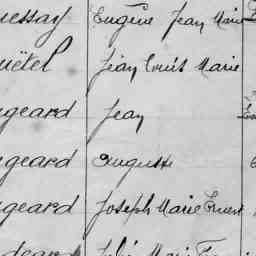 uessay Eugène Jean Marie
uëtel Jean Louis Marie
geard Jean
geard Auguste
geard Joseph Marie Ernest
geard Marie